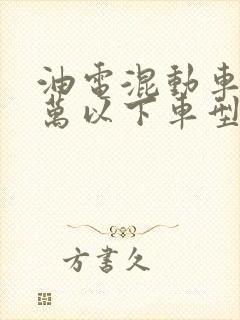 油電混動車
萬以下車型
方書久